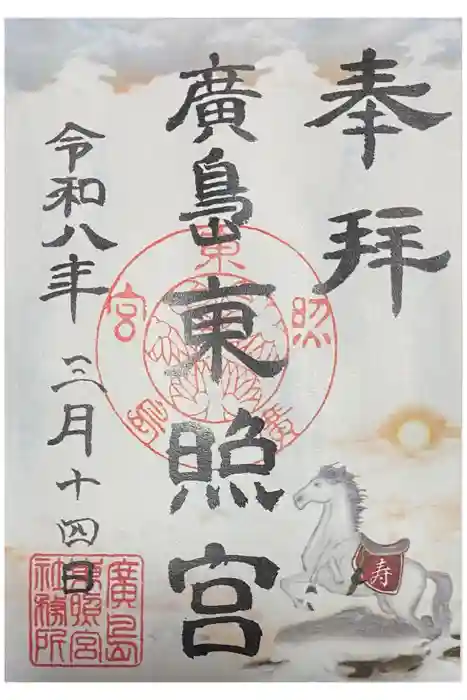 奉拝
廣島東照宮
令和八年三月十四日
東照宮
廣島
東照宮
社務所
寿